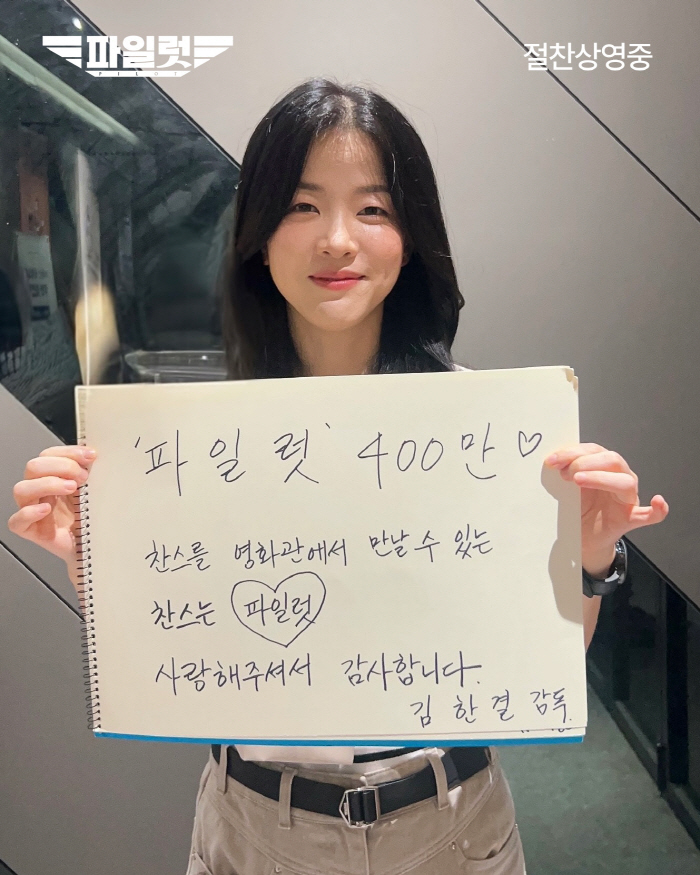 파일럿
PILOT
절찬상영중
'파일럿' 400만♡
찬스를 영화관에서 만날 수 있는
찬스는 파일럿
사랑해주셔서 감사합니다.
김한결 감독.